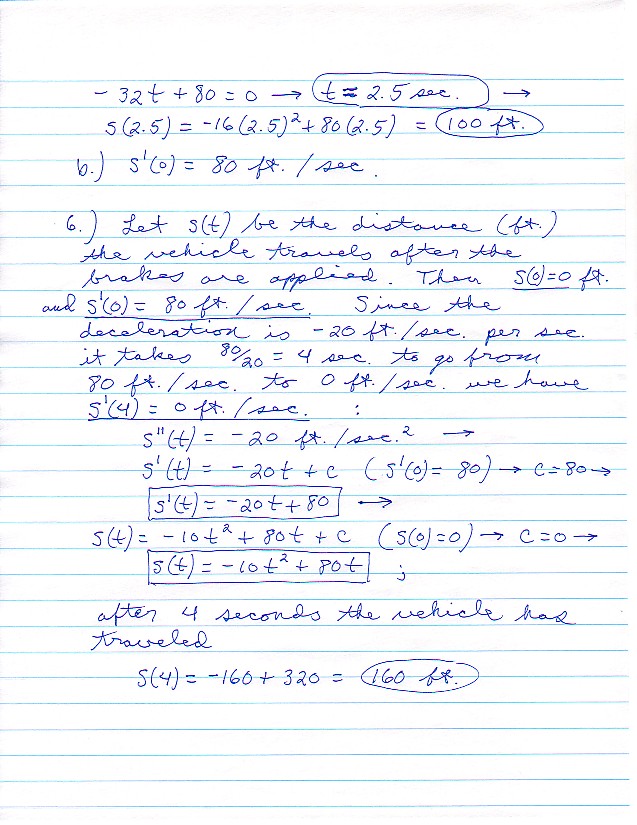 - 32t + 80 = 0 → t = 2.5 sec. →
S(2.5) = -16(2.5)² + 80(2.5) = 100 ft.
b.) S'(0) = 80 ft. / sec.
6.) Let S(t) be the distance (ft.)
the vehicle travels after the
brakes are applied. Then S(0)=0 ft.
and S'(0) = 80 ft. / sec. Since the
deceleration is -20 ft. / sec. per sec.
it takes 80/20 = 4 sec. to go from
80 ft. / sec. to 0 ft. / sec. we have
S'(4) = 0 ft. / sec. :
S"(t) = -20 ft. / sec.² →
S'(t) = -20t + c (S'(0) = 80) → c = 80 →
S'(t) = -20t + 80 →
S(t) = -10t² + 80t + c (S(0)=0) → c = 0 →
S(t) = -10t² + 80t ;
after 4 seconds the vehicle has
traveled
S(4) = -160 + 320 = 160 ft.